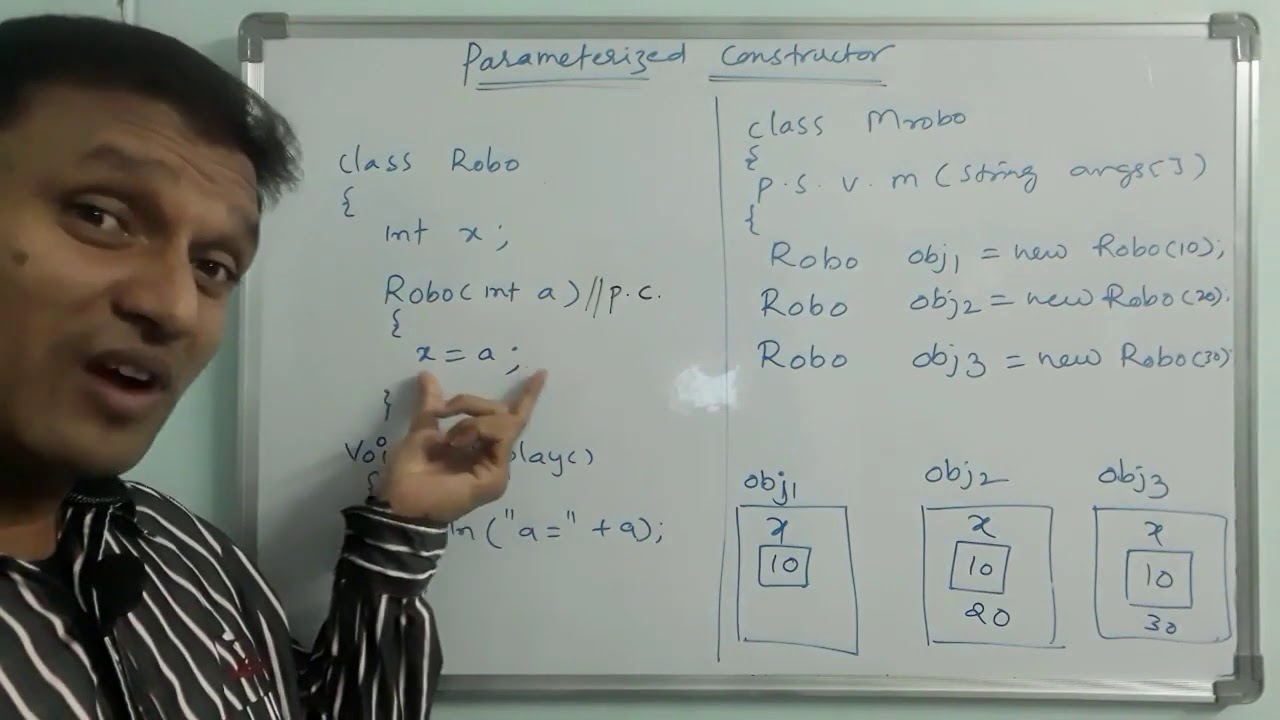 Parameterized Constructor
class Robo
{
int x;
Robo(int a)//p.c.
{
x=a;
}
{
ln("a="+a);
class Mrobo
{
p.s.v.m(string args[])
{
Robo obj1 = new Robo(10);
Robo obj2 = new Robo(20);
Robo obj3 = new Robo(30);
obj1 obj2 obj3
x x x
10 10 10
20 30